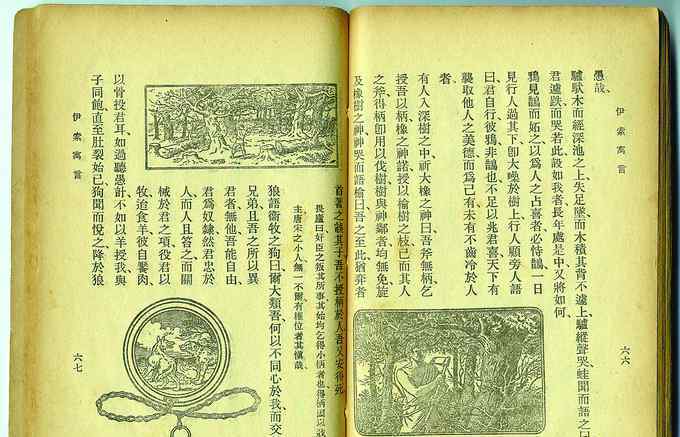 伊索寓言
愚哉、
驢馱木而經深池之上失足墜而木積其背不遽上驢縱聲哭蛙聞而語之曰
君遽跌而哭若此設如我者長年處是中又將如何、
鴉見鵲而妒之以爲人之占喜者必恃鵲一日
見行人過其下卽大噪於樹上行人顧旁人語
曰君自行彼鴉非鵲也不足以兆君喜天下有
襲取他人之美德而爲己有未有不齒冷於人
者、
有人入深樹之中祈大橡之神曰吾斧無柄乞
授吾以柄橡之神諾授以榆樹之枝已而其人
之斧得柄卽用以伐樹樹與神鄰者均無免旋
及橡樹之神神哭而語榆曰吾之至此猶弈者
六六
首著之誤其子吾不授柄於人吾又安得死、
畏廬曰奸臣之叛其所事其始均乞得小柄者也得柄固以戕
主唐宋之小人無一不爾有權位者其愼哉、
狼語衛牧之狗曰爾大類吾何以不同心於我而交
兄弟且吾之所以異
君者無他吾能自由
君爲奴隸然君忠於
人而人且答之而關
械於君之項役君以
牧迨食羊彼自饜肉
以骨投君耳如過聽愚計不如以羊授我與
子同飽直至肚裂始已狗聞而悅之降於狼
伊索寓言
六七